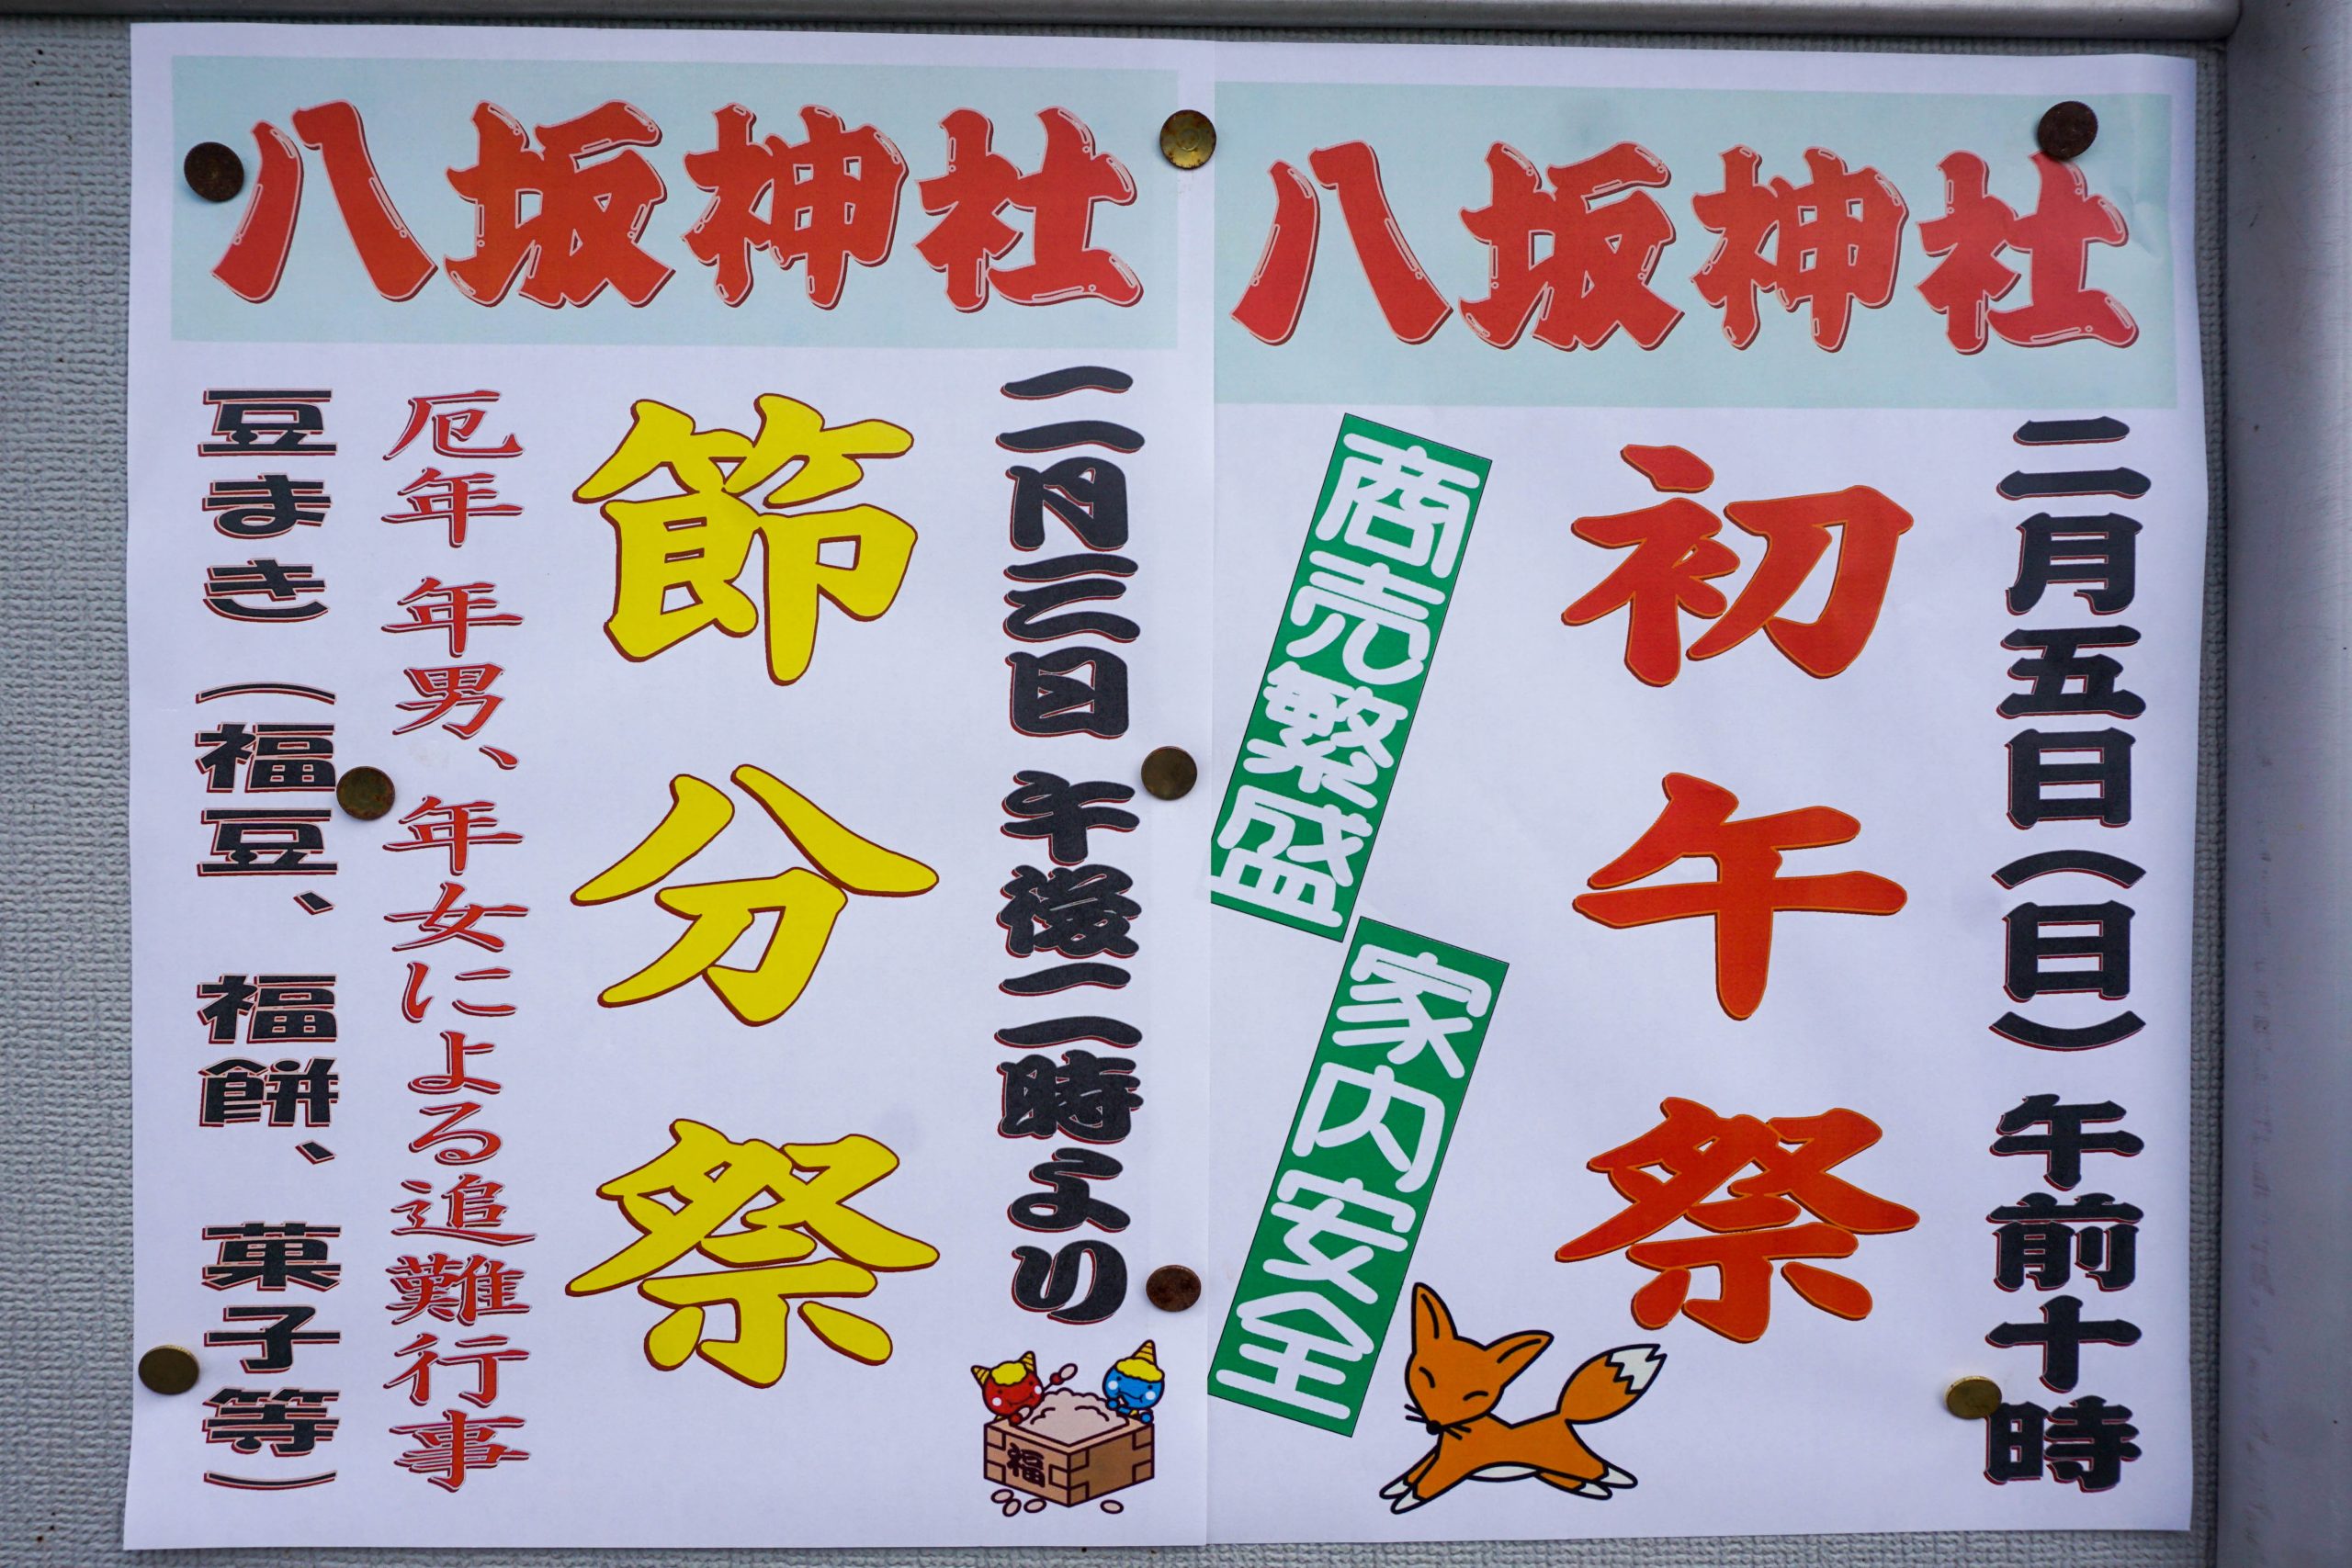 八坂神社
二月三日 午後二時より
節分祭
厄年 年男、年女による追難行事
豆まき（福豆、福餅、菓子等）
福
八坂神社
二月五日（日）午前十時
初午祭
商売繁盛
家内安全